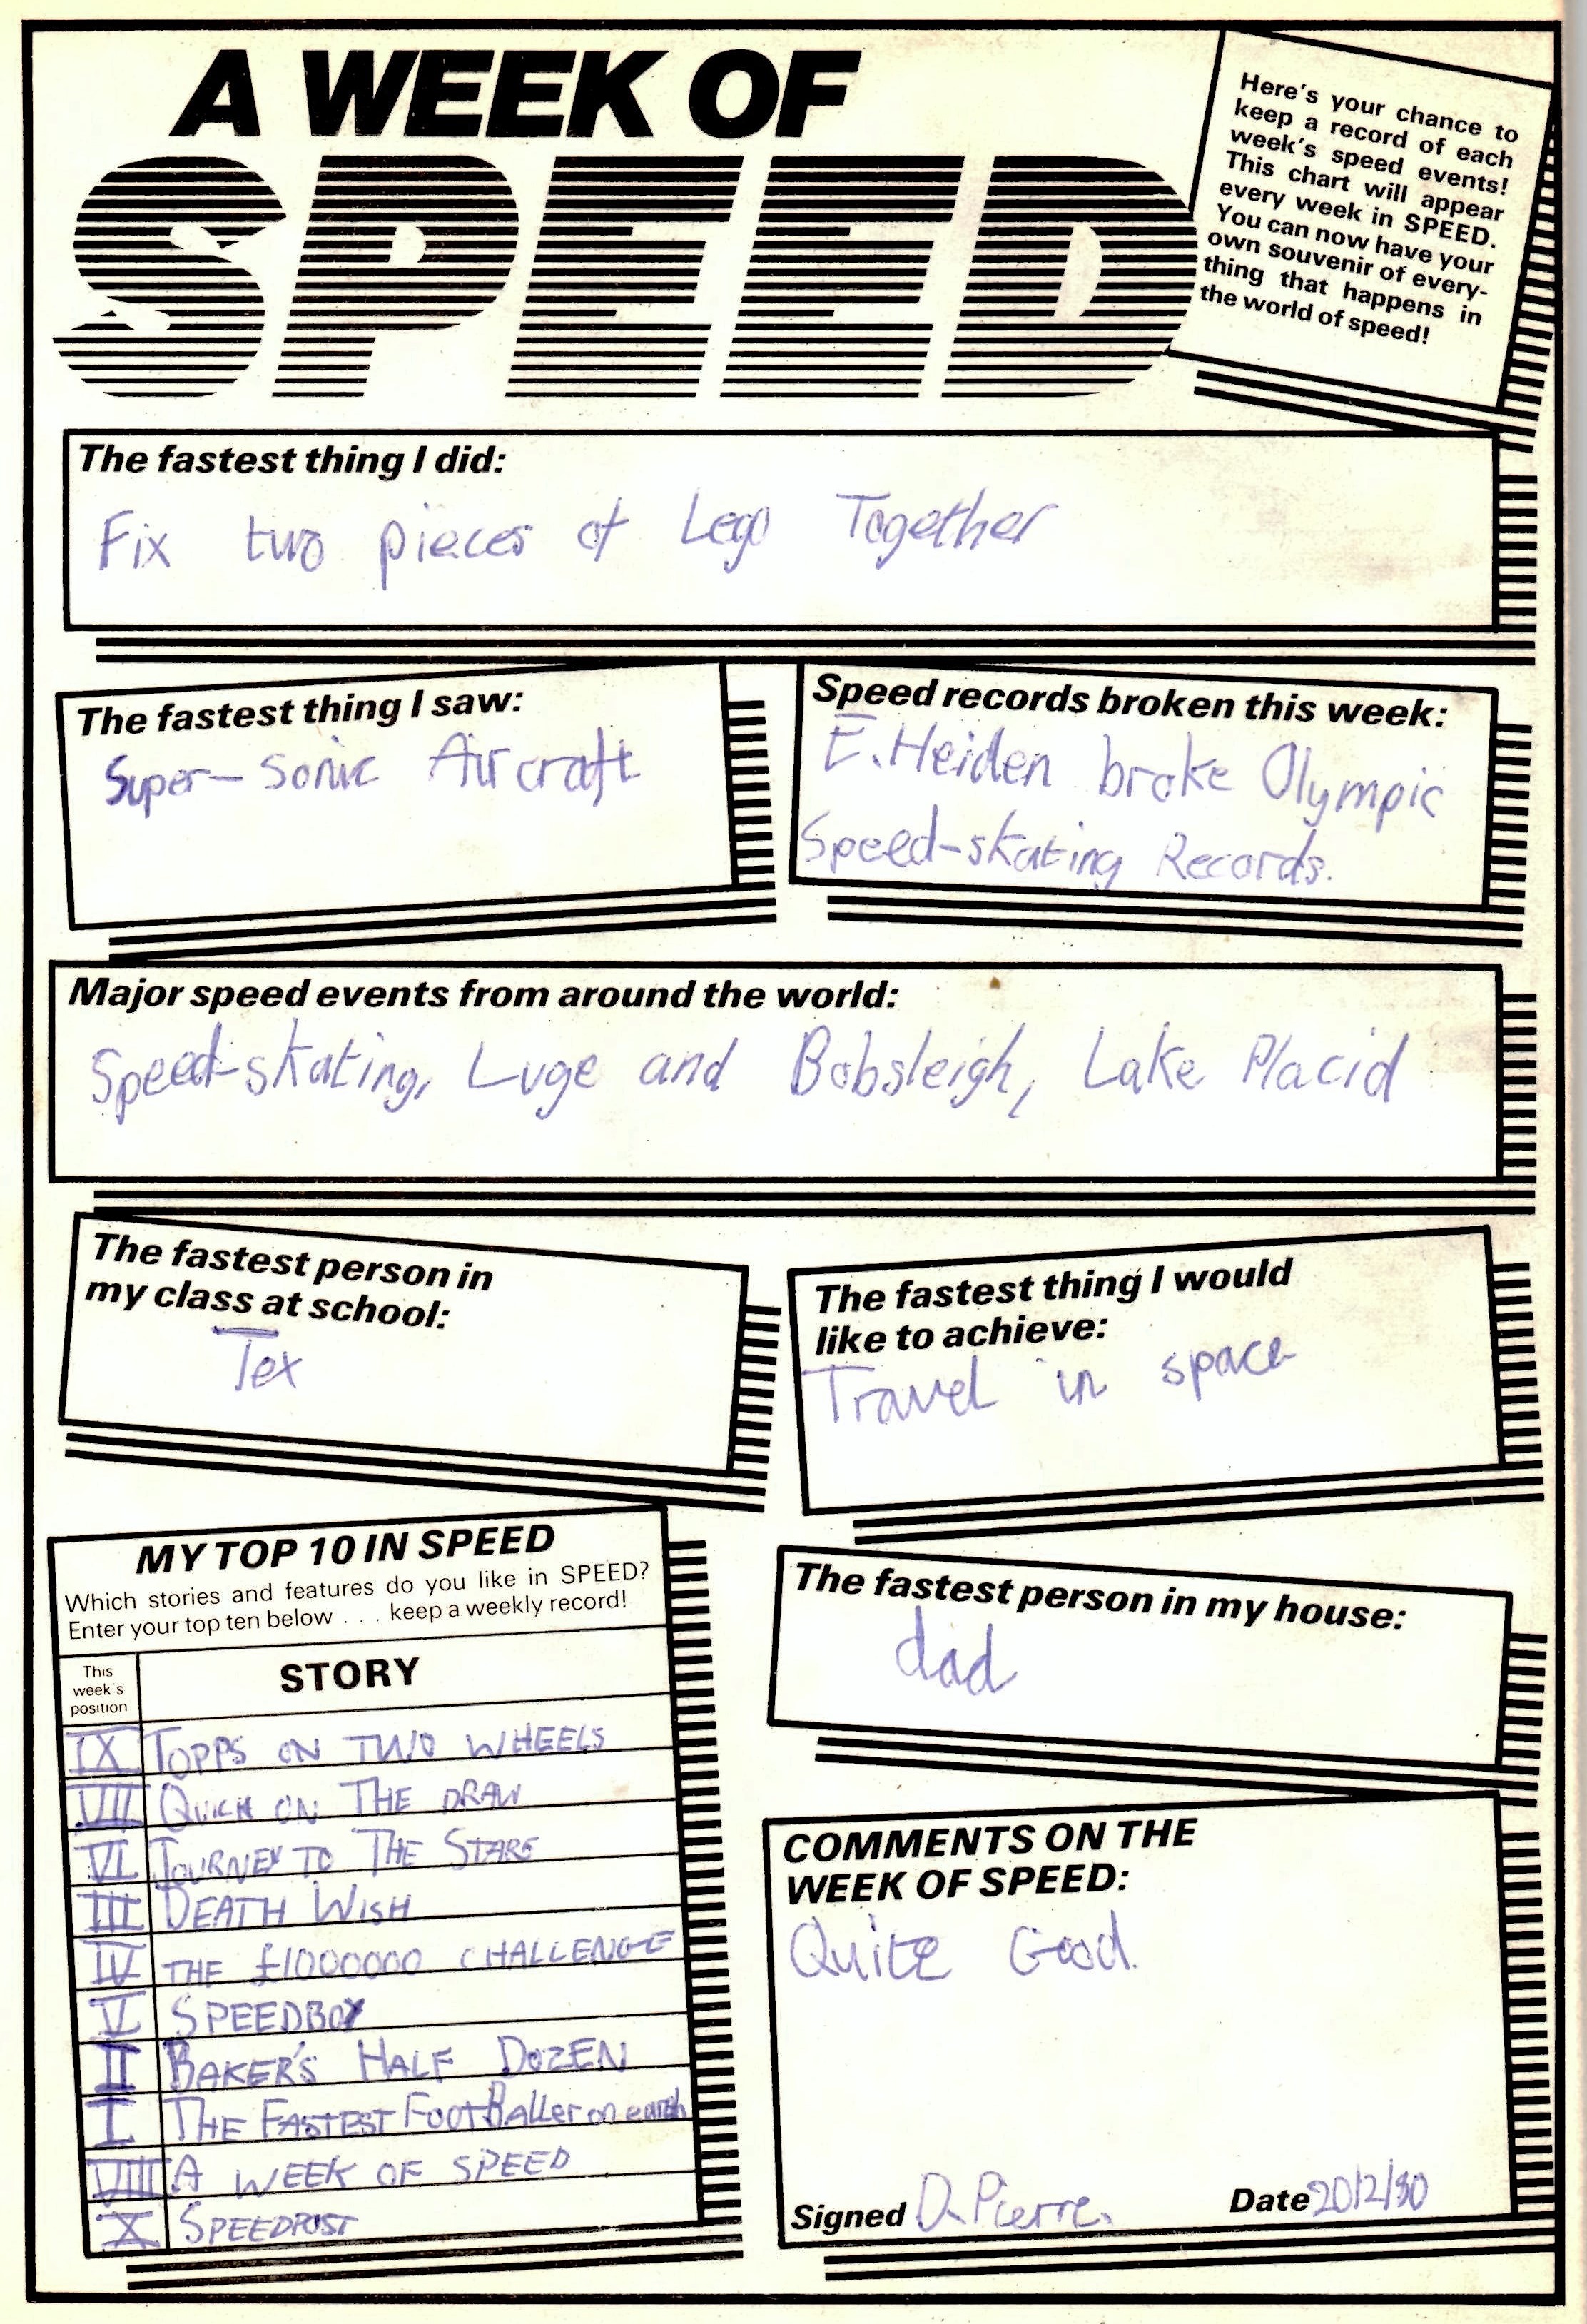 A WEEK OF
SPEED
Here's your chance to
keep a record of each
week's speed events!
This chart will appear
every week in SPEED.
You can now have your
own souvenir of every-
thing that happens in
the world of speed!
The fastest thing I did:
Fix two pieces of Lego Together
The fastest thing I saw:
Super-sonic Aircraft
Speed records broken this week:
E. Heiden broke Olympic
Speed-skating Records.
Major speed events from around the world:
Speed-skating, Luge and Bobsleigh, Lake Placid
The fastest person in
my class at school:
Tex
The fastest thing I would
like to achieve:
Travel in space
MY TOP 10 IN SPEED
Which stories and features do you like in SPEED?
Enter your top ten below . . . keep a weekly record!
This
week's
position
STORY
IX TOPPS ON TWO WHEELS
VII QUICK ON THE DRAW
VI JOURNEY TO THE STARS
III DEATH WISH
IV THE £1000000 CHALLENGE
V SPEEDBOY
II BAKER'S HALF DOZEN
I THE FASTEST FOOTBALLer on earth
VIII A WEEK OF SPEED
X SPEEDPOST
The fastest person in my house:
dad
COMMENTS ON THE
WEEK OF SPEED:
Quite Good.
Signed D. Pierre. Date 20/2/80